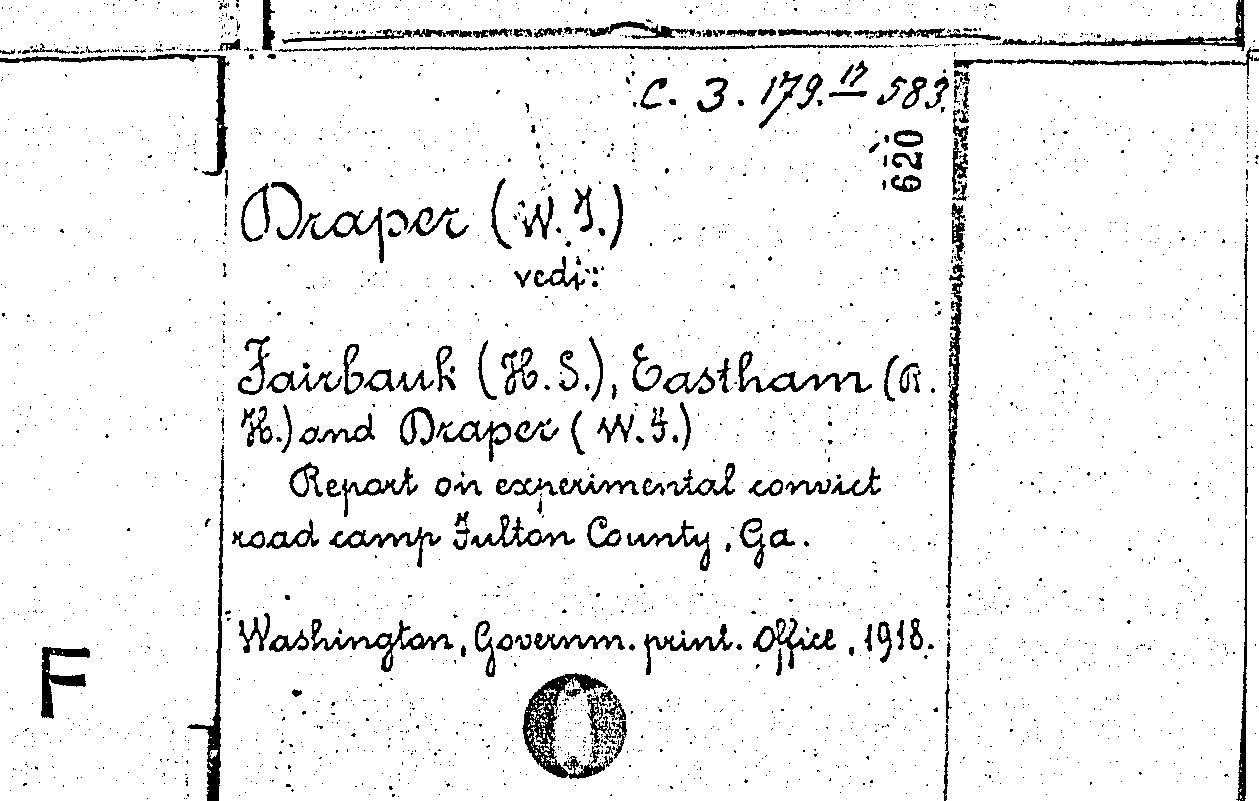 C. 3. 179. 17 583.
620
Draper (W. F.)
vedi:
Fairbank (H. S.), Eastham (R.
H.) and Draper (W. F.)
Report on experimental convict
road camp Fulton County, Ga.
Washington, Governm. print. Office, 1918.
F